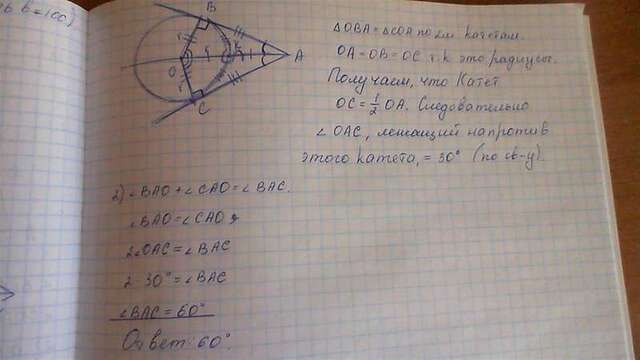 ь b = 100)
B
r
r
O
A
r
C
ΔOBA = ΔCOA по двум катетам.
OA = OB = OC т.к это радиусы.
Получаем, что Катет
OC = 1/2 OA. Следовательно
∠OAC, лежащий напротив
этого катета, = 30° (по св-у).
2) ∠BAO + ∠CAO = ∠BAC.
∠BAO = ∠CAO
2∠OAC = ∠BAC
2 · 30° = ∠BAC
∠BAC = 60°
Ответ: 60°.